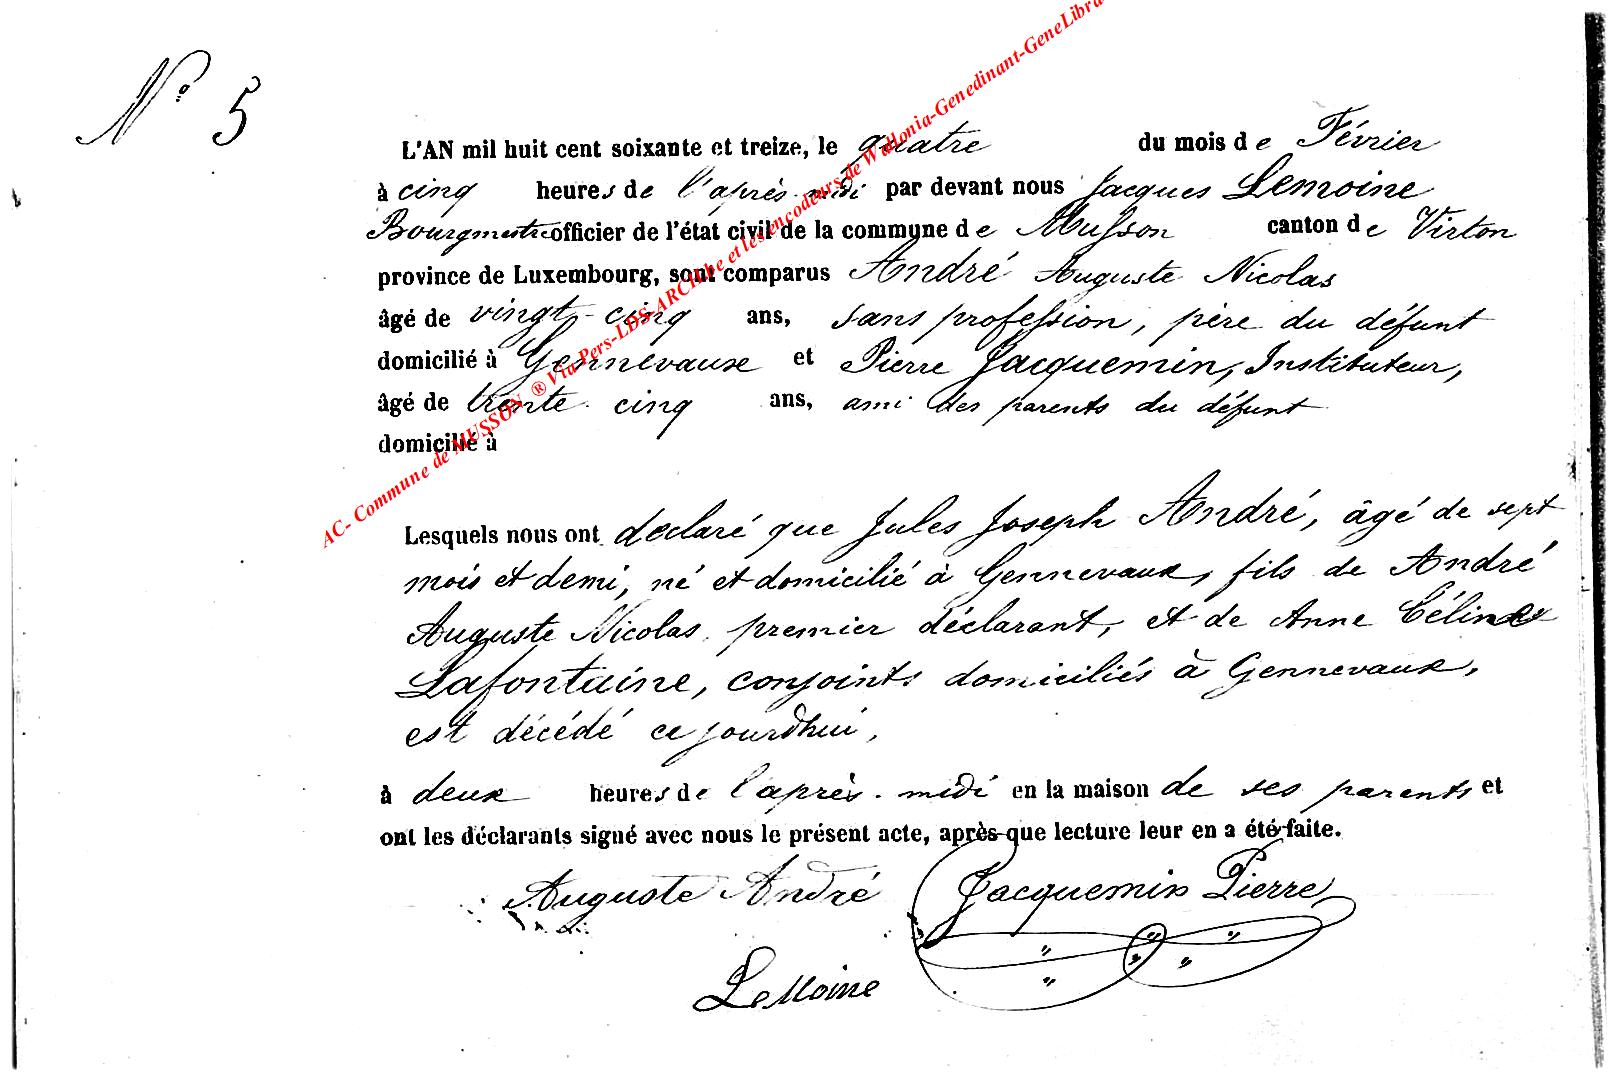 N° 5
L'AN mil huit cent soixante et treize, le quatre du mois de Février
à cinq heures de l'après-midi par devant nous Jacques Lemoine
Bourgmestre officier de l'état civil de la commune de Musson canton de Virton
province de Luxembourg, sont comparus André Auguste Nicolas
âgé de vingt-cinq ans, sans profession, père du défunt
domicilié à Gennevaux et Pierre Jacquemin, Instituteur,
âgé de trente-cinq ans, ami des parents du défunt
domicilié à
Lesquels nous ont declaré que Jules Joseph André, âgé de sept
mois et demi, né et domicilié à Gennevaux, fils de André
Auguste Nicolas, premier déclarant, et de Anne Céline
Lafontaine, conjoints domiciliés à Gennevaux,
est décédé ce jourdhui,
à deux heures de l'après-midi en la maison de ses parents et
ont les déclarants signé avec nous le présent acte, après que lecture leur en a été faite.
Auguste André Jacquemin Pierre
Lemoine
AC- Commune de MUSSON ® Via Pers-LDS-ARCH.be et les encodeurs de Wallonia-Genedinant-GeneLibra